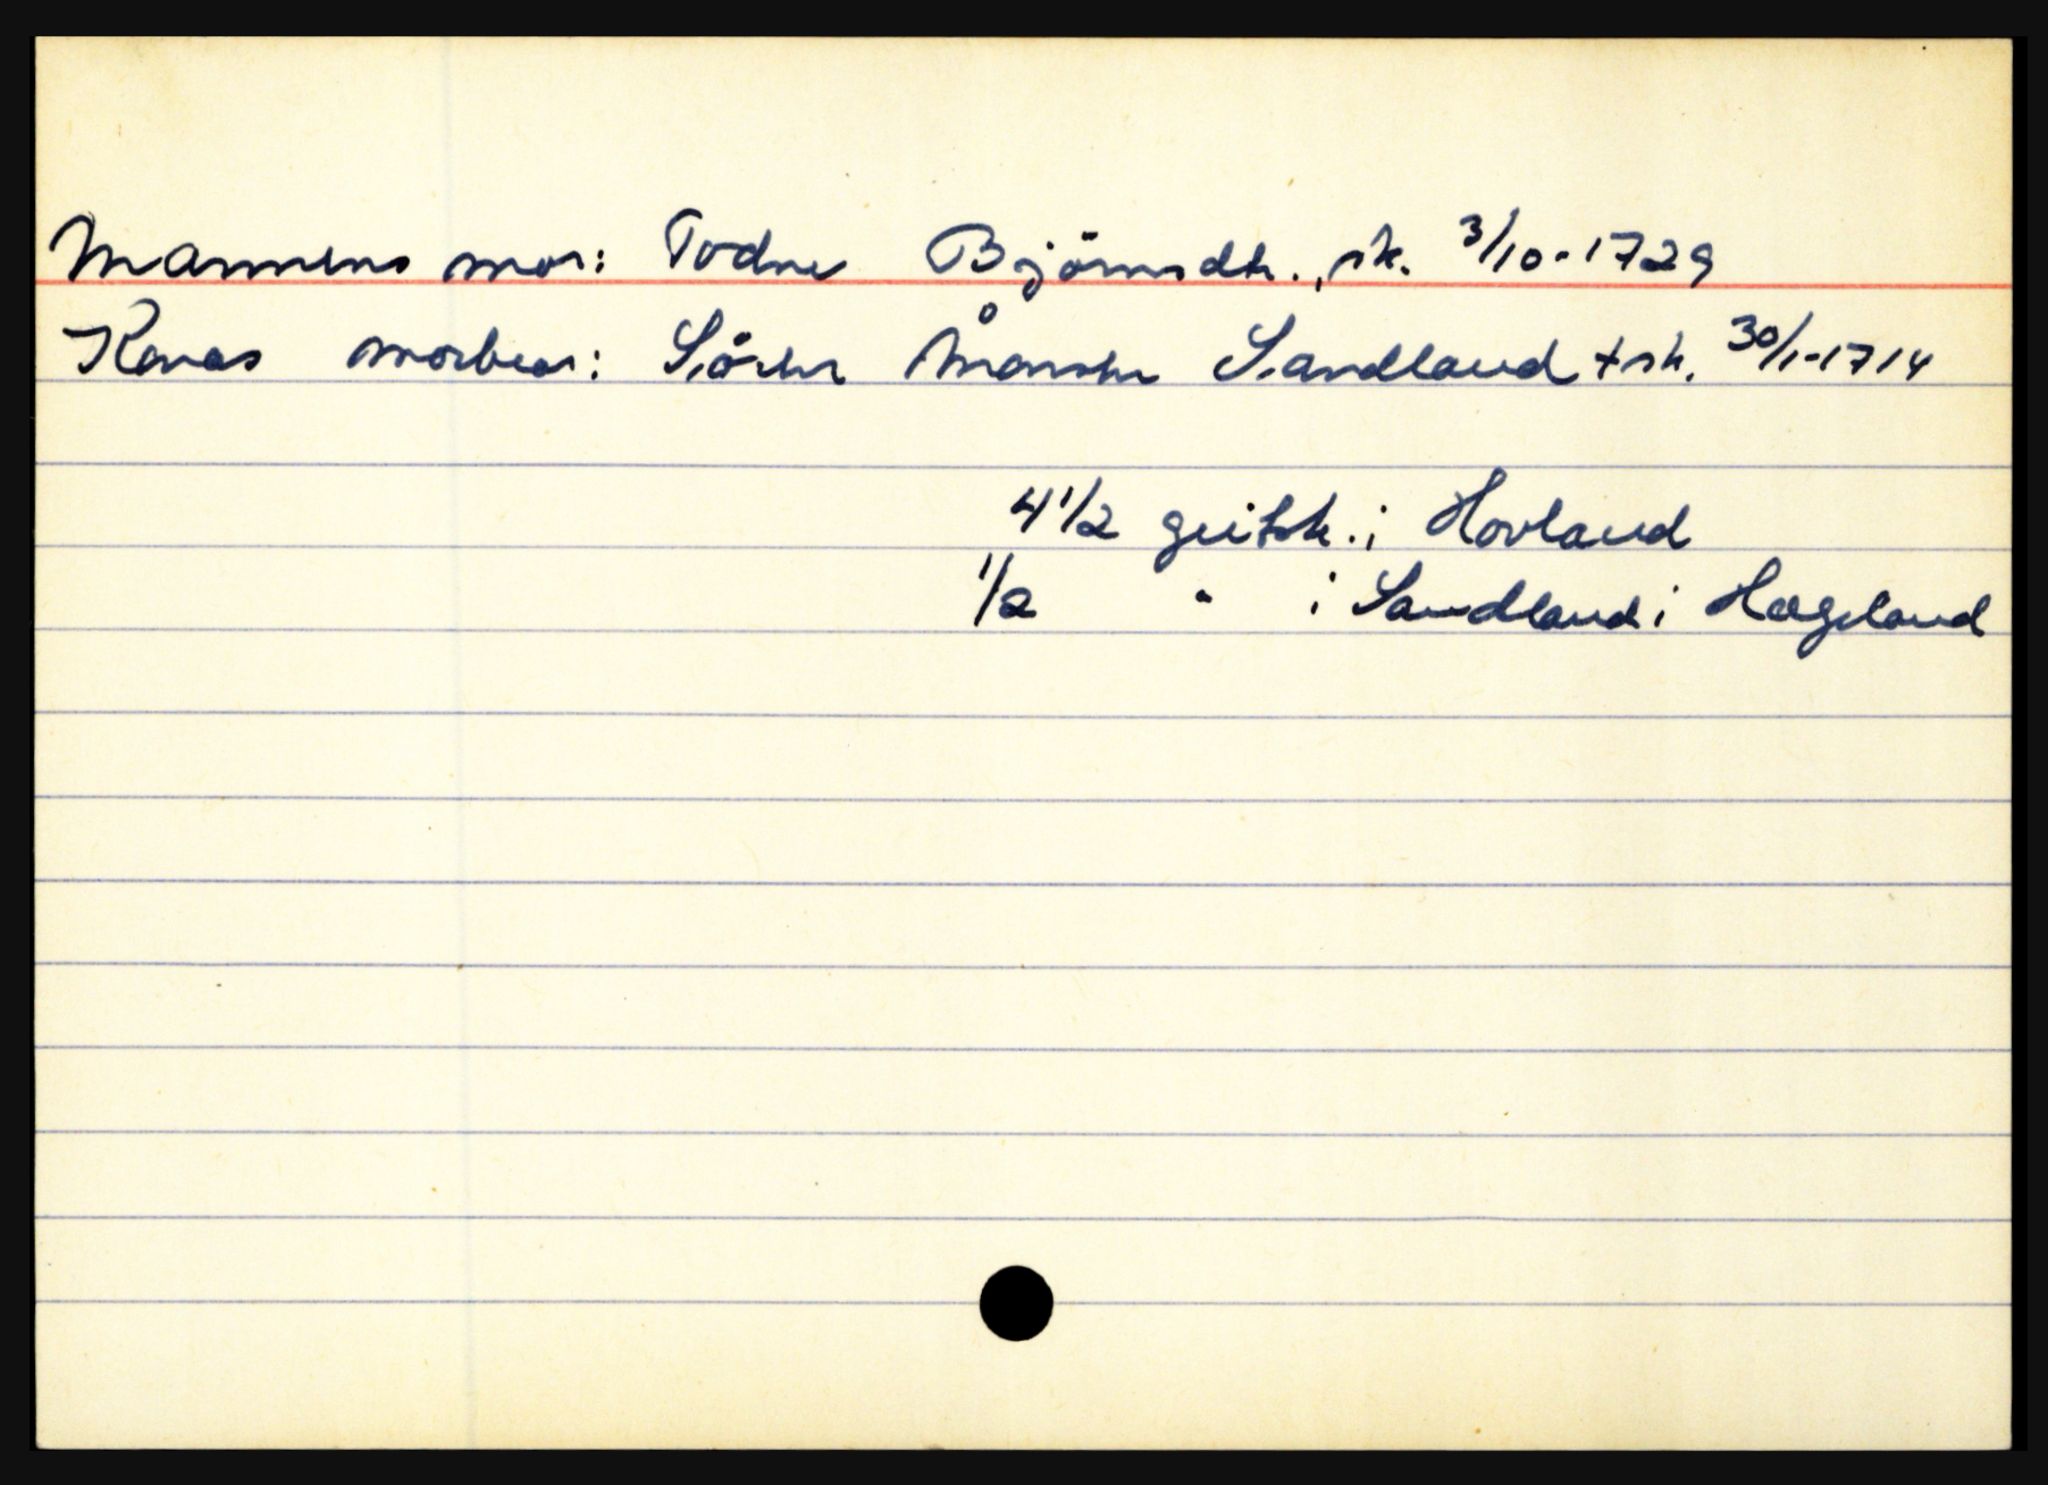 Mannens mor: Todne Björnsdtr., sk. 3/10-1729
Konas morbror: Sören Monsen Sandland + sk. 30/1-1714
4 1/2 geitsk. i Hovland
1/2 " i Sandland i Hægeland